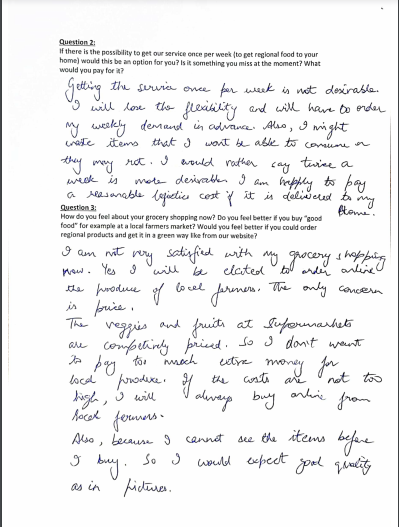 Question 2:
If there is the possibility to get our service once per week (to get regional food to your
home) would this be an option for you? Is it something you miss at the moment? What
would you pay for it?
Getting the service once per week is not desirable.
I will lose the flexibility and will have to order
my weekly demand in advance. Also, I might
waste items that I wont be able to consume or
they may rot. I would rather say twice a
week is more desirable. I am happly to pay
a reasonable logistics cost if it is delivered to my
home.
Question 3:
How do you feel about your grocery shopping now? Do you feel better if you buy "good
food" for example at a local farmers market? Would you feel better if you could order
regional products and get it in a green way like from our website?
I am not very satisfied with my grocery shopping
now. Yes I will be elated to order online
the produce of local farmers. The only concern
is price.
The veggies and fruits at Supermarkets
are competively priced. So I don't want
to pay too much extra money for
local produce. If the costs are not too
high, I will always buy online from
local farmers.
Also, because I cannot see the items before
I buy. So I would expect good quality
as in pictures.